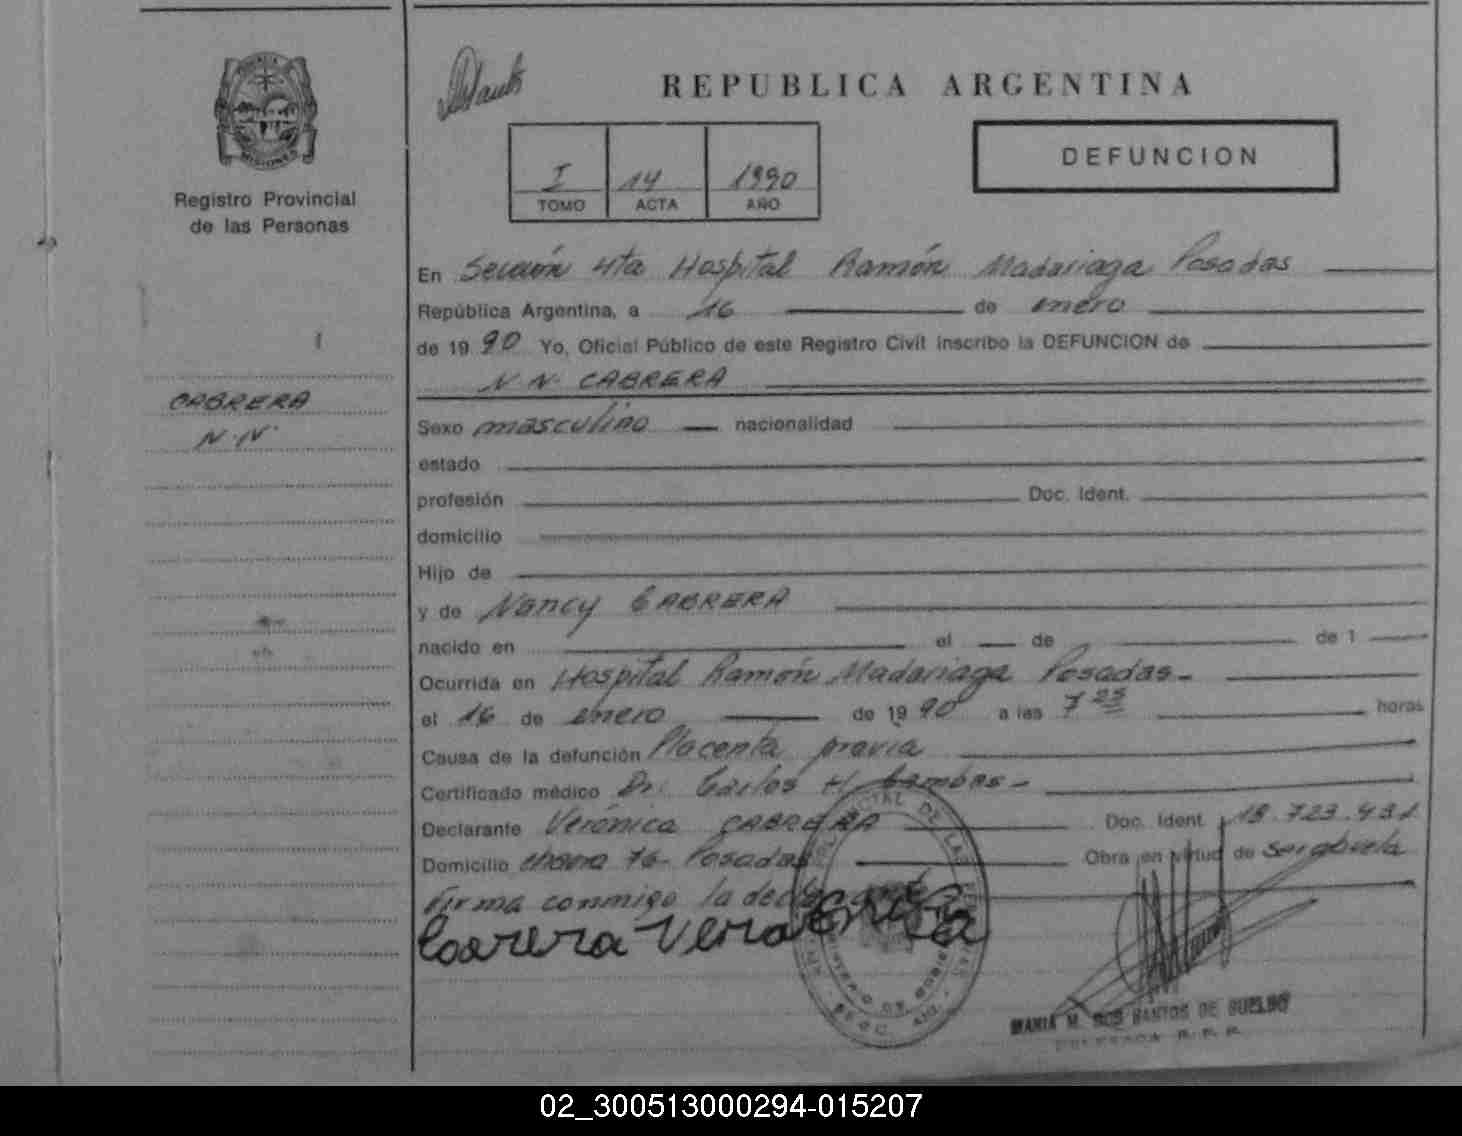 REPUBLICA ARGENTINA
MISIONES
Registro Provincial
de las Personas
I 14 1990
TOMO ACTA AÑO
DEFUNCION
En Sección 4ta Hospital Ramón Madariaga Posadas
República Argentina, a 16 de enero
de 19 90 Yo, Oficial Público de este Registro Civil inscribo la DEFUNCION de
N.N. CABRERA
CABRERA
N.N.
Sexo masculino nacionalidad
estado
profesión Doc. Ident.
domicilio
Hijo de
y de Nancy CABRERA
nacido en el de de 1
Ocurrida en Hospital Ramón Madariaga Posadas-
el 16 de enero de 19 90 a las 7 25 horas
Causa de la defunción Placenta previa
Certificado médico Dr. Carlos H.
Declarante Verónica CABRERA Doc. Ident 18.723.431
Domicilio 76- Posadas Obra en virtud de ser abuela
Firma conmigo la declarante
MARIA M. DOS SANTOS DE
DELEGADA R.P.P.
02_300513000294-015207